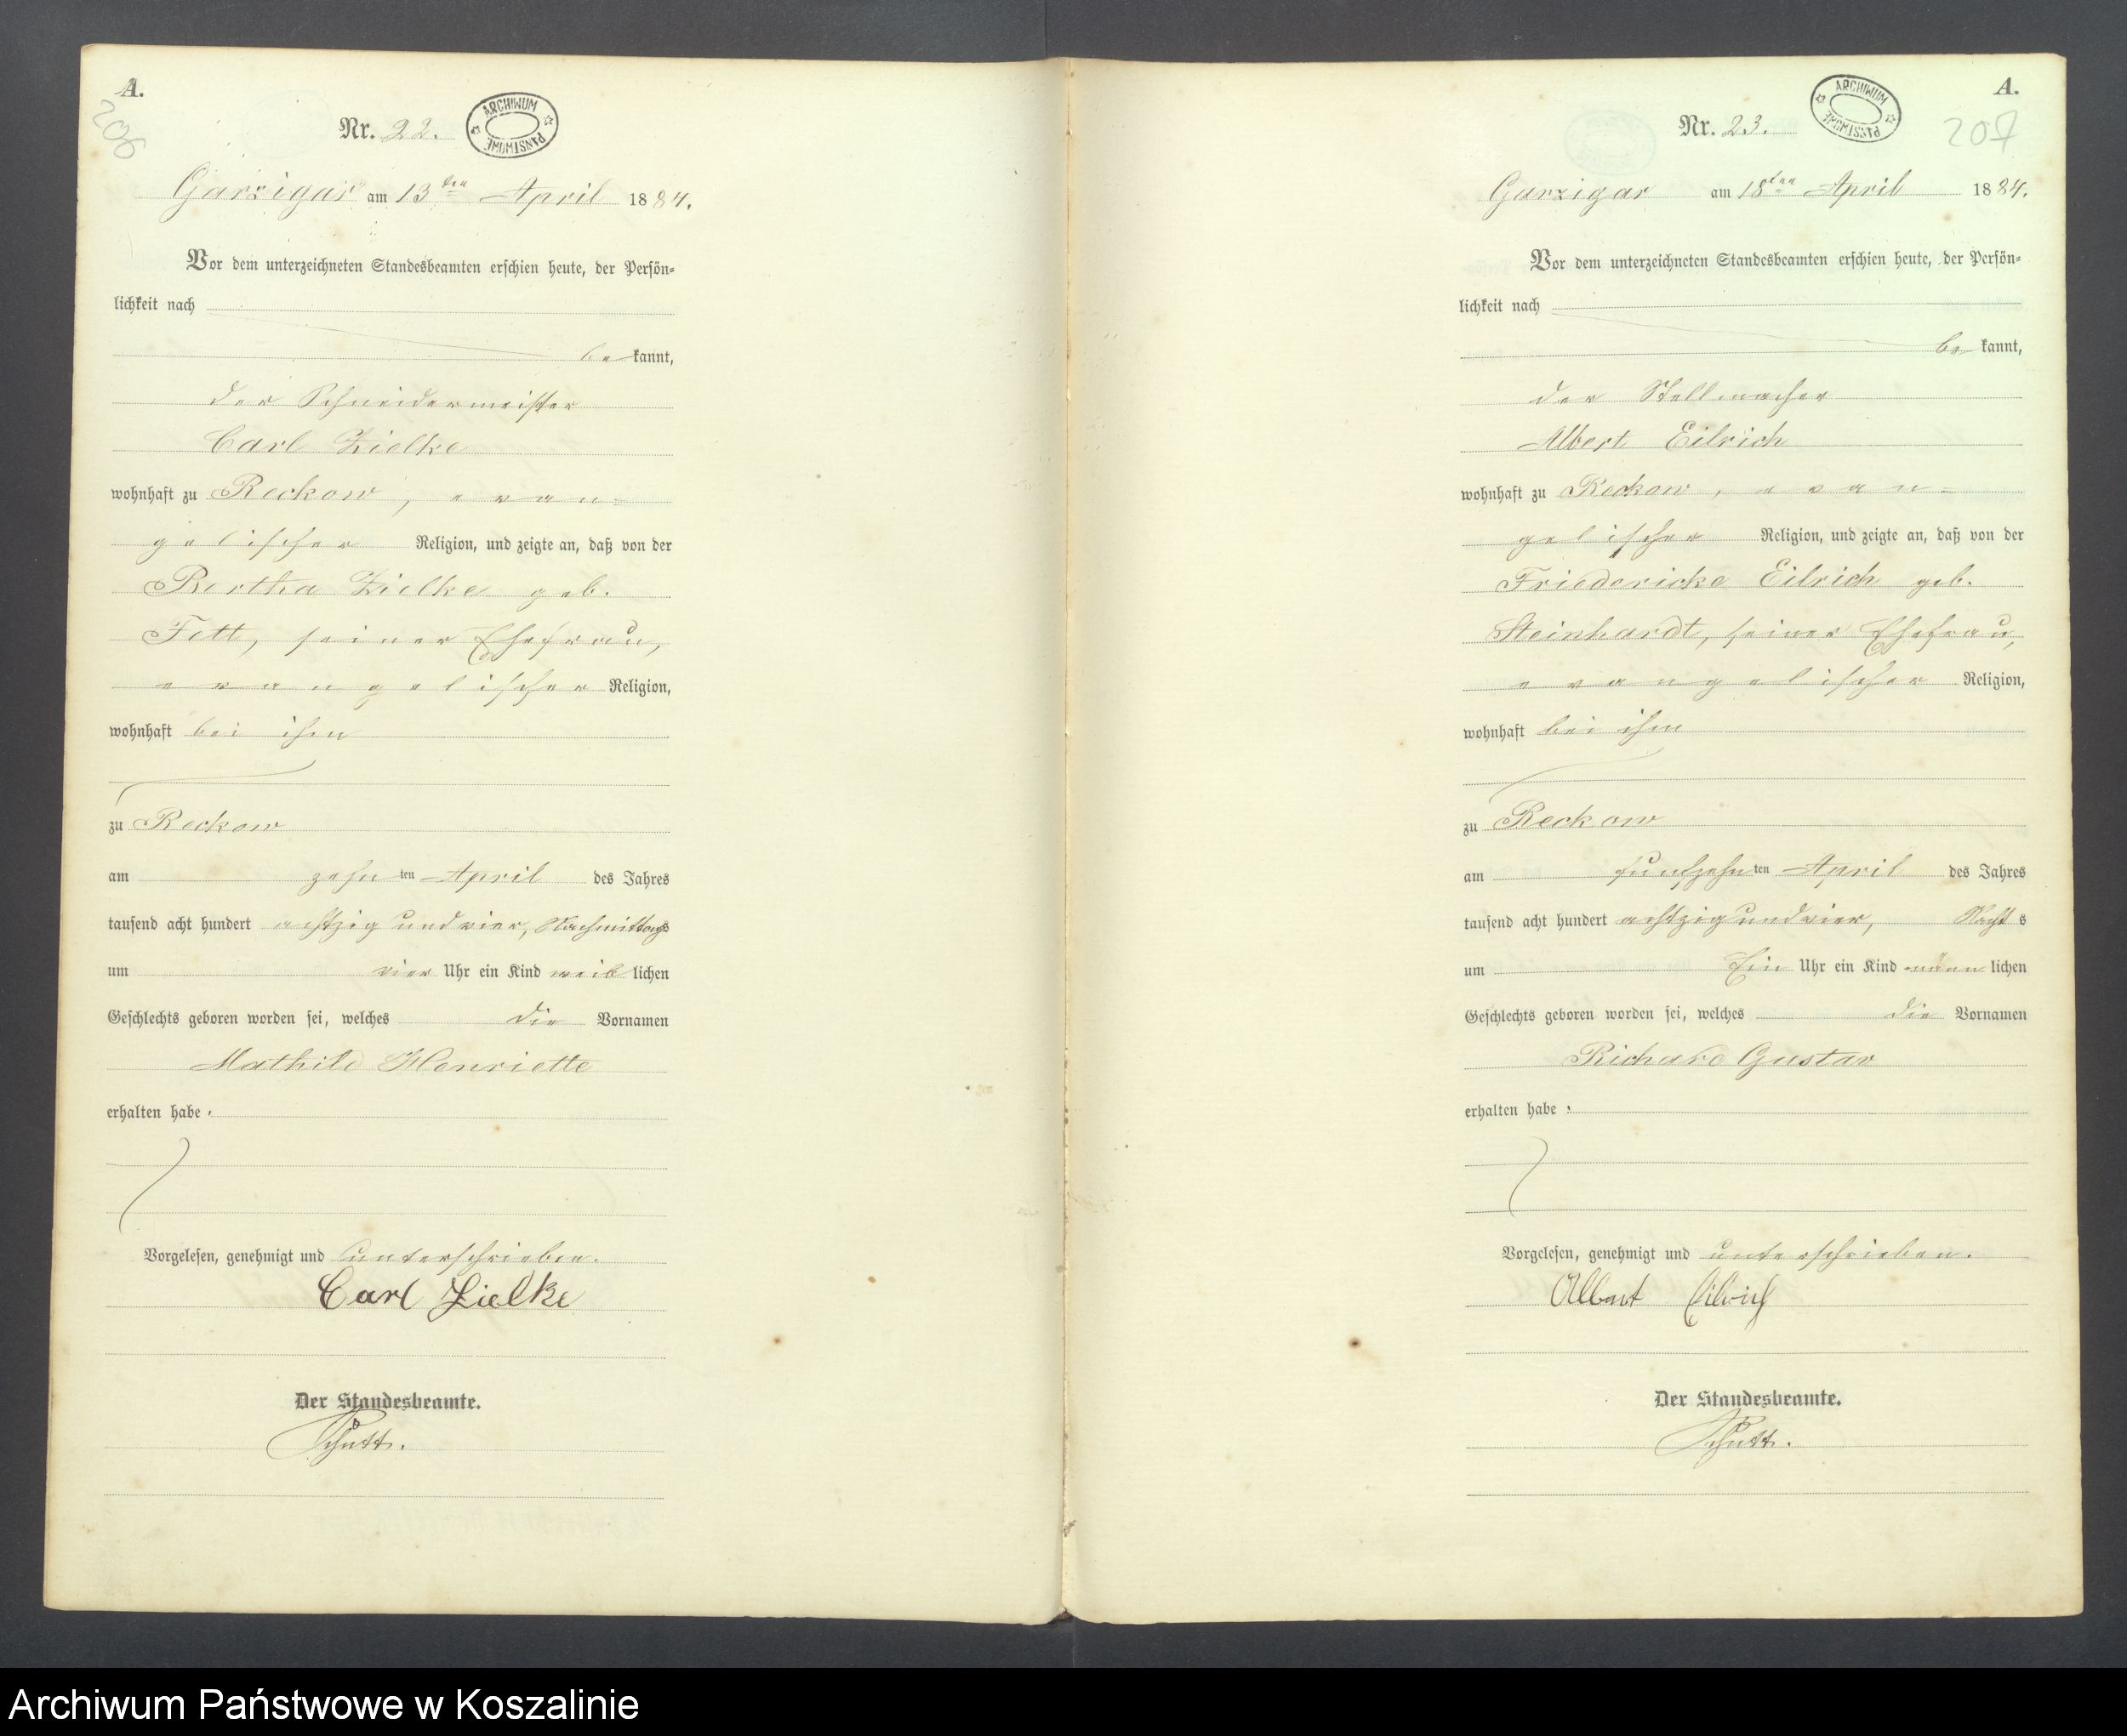 A.
206
Nr. 22.
ARCHIWUM PAŃSTWOWE
Garzigar am 13ten April 1884.
Vor dem unterzeichneten Standesbeamten erschien heute, der Persön=
lichkeit nach
bekannt,
der Schneidermeister
Carl Zielke
wohnhaft zu Reckow, evan=
gelischer Religion, und zeigte an, daß von der
Bertha Zielke geb.
Fett, seiner Ehefrau,
evangelischer Religion,
wohnhaft bei ihm
zu Reckow
am zehnten April des Jahres
tausend acht hundert achtzig und vier, Nachmittags
um vier Uhr ein Kind weiblichen
Geschlechts geboren worden sei, welches die Vornamen
Mathilde Henriette
erhalten habe.
Vorgelesen, genehmigt und unterschrieben.
Carl Zielke
Der Standesbeamte.
Schütt.
A.
207
Nr. 23.
ARCHIWUM PAŃSTWOWE
Garzigar am 18ten April 1884.
Vor dem unterzeichneten Standesbeamten erschien heute, der Persön=
lichkeit nach
bekannt,
der Stellmacher
Albert Eilrich
wohnhaft zu Reckow, evan=
gelischer Religion, und zeigte an, daß von der
Friedericke Eilrich geb.
Steinhardt, seiner Ehefrau,
evangelischer Religion,
wohnhaft bei ihm
zu Reckow
am funfzehnten April des Jahres
tausend acht hundert achtzig und vier, Nachts
um Ein Uhr ein Kind männlichen
Geschlechts geboren worden sei, welches die Vornamen
Richard Gustav
erhalten habe.
Vorgelesen, genehmigt und unterschrieben.
Albert Eilrich
Der Standesbeamte.
Schütt.
Archiwum Państwowe w Koszalinie